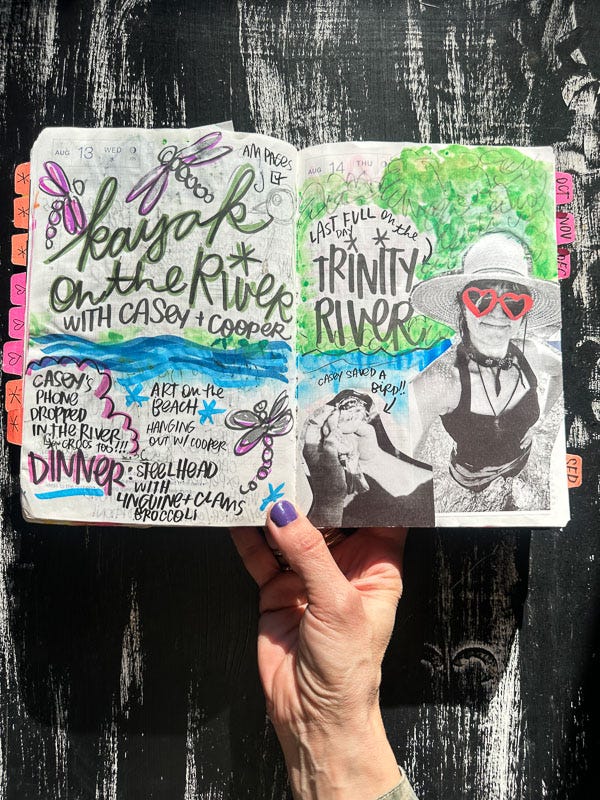 AUG 13 WED
AM PAGES
kayak
on the RiveR
WITH CASEY + COOPER
CASEY'S
PHONE
DROPPED
IN THE RIVER
ART on the
BEACH
HANGING
OUT W/ COOPER
DINNER: STEELHEAD
WITH
LINGUINE + CLAMS
BROCCOLI
AUG 14 THU
LAST FULL on the
DAY
TRINITY
RIVER
CASEY SAVED A
BIRD!!
OCT
NOV
DEC